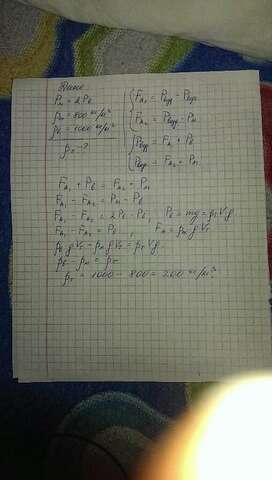 Дано
Pм = 2Pв
ρм = 800 кг/м³
ρв = 1000 кг/м³
ρт - ?
FА₁ = Pвозд - Pвод
FА₂ = Pвозд - Pм
Pвозд = FА₁ + Pв
Pвозд = FА₂ + Pм
FА₁ + Pв = FА₂ + Pм
FА₁ - FА₂ = Pм - Pв
FА₁ - FА₂ = 2Pв - Pв, Pв = mg = ρт Vg
FА₁ - FА₂ = Pв, FА = ρж g Vт
ρв g Vт - ρм g Vт = ρт V g
ρв - ρм = ρт
ρт = 1000 - 800 = 200 кг/м³